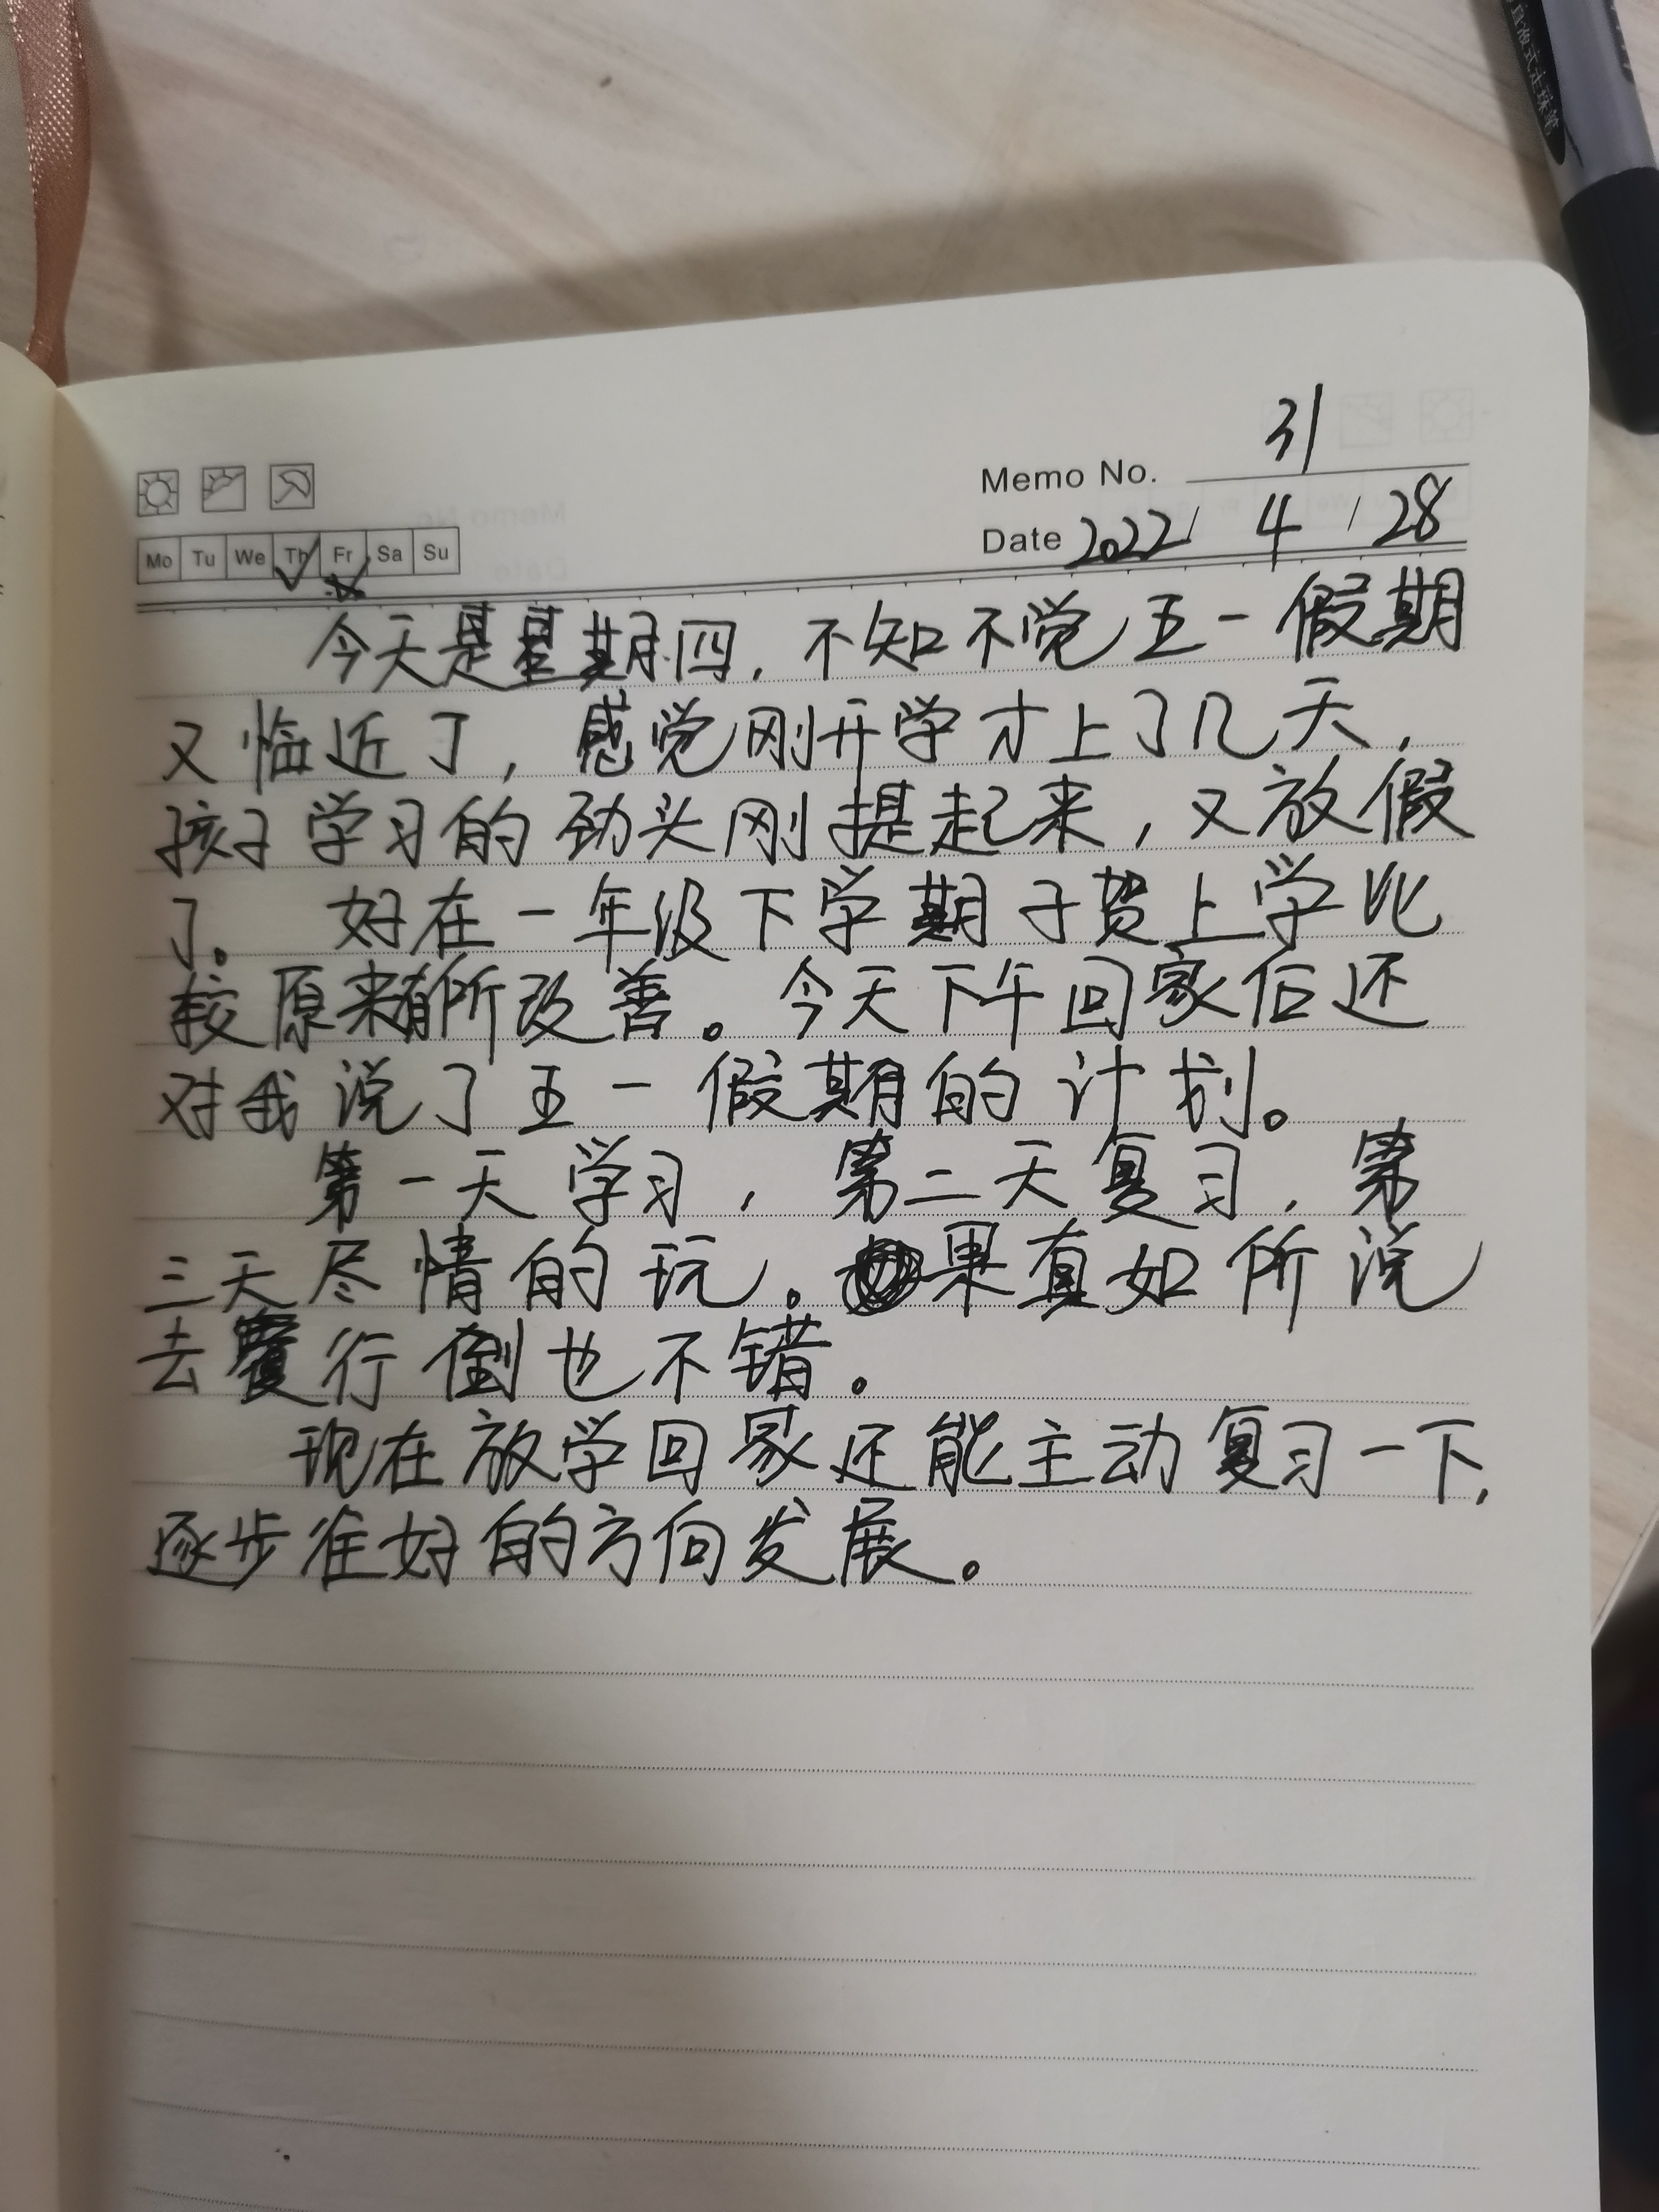 直液式走珠笔
Memo No. 31
Mo Tu We Th Fr Sa Su
Date 2022/ 4 / 28
今天是星期四，不知不觉五一假期
又临近了，感觉刚开学才上了几天，
孩子学习的劲头刚提起来，又放假
了。好在一年级下学期子贺上学比
较原来有所改善。今天下午回家后还
对我说了五一假期的计划。
第一天学习，第二天复习，第
三天尽情的玩。果真如所说
去履行倒也不错。
现在放学回家还能主动复习一下，
逐步往好的方向发展。